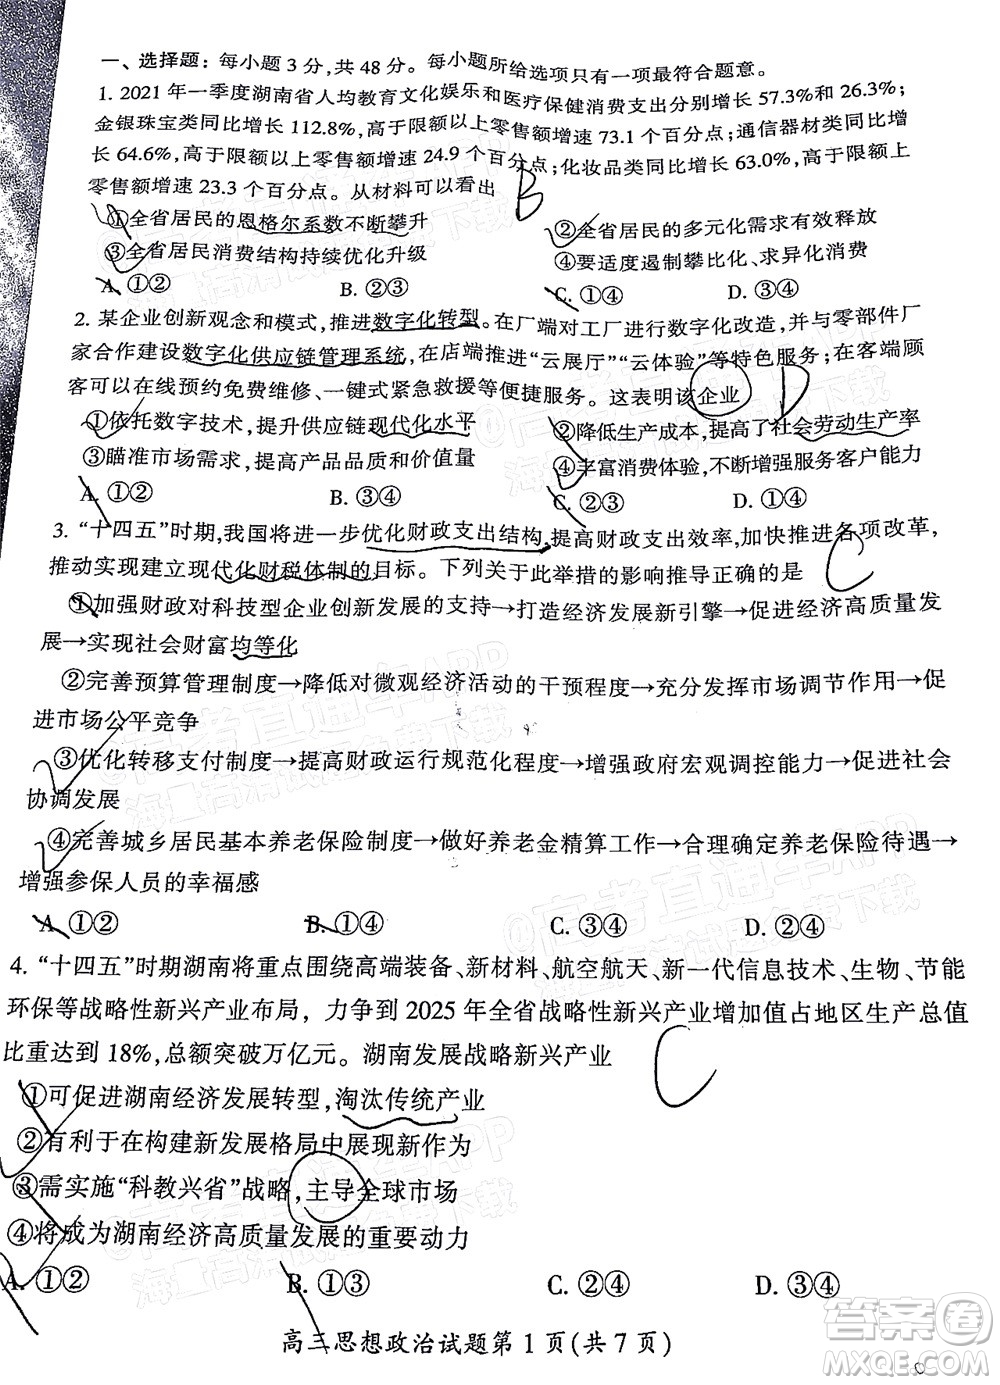 一、选择题：每小题3分，共48分。每小题所给选项只有一项最符合题意。
1. 2021年一季度湖南省人均教育文化娱乐和医疗保健消费支出分别增长57.3%和26.3%；
金银珠宝类同比增长112.8%，高于限额以上零售额增速73.1个百分点；通信器材类同比增
长64.6%，高于限额以上零售额增速24.9个百分点；化妆品类同比增长63.0%，高于限额上
零售额增速23.3个百分点。从材料可以看出
B
①全省居民的恩格尔系数不断攀升 ②全省居民的多元化需求有效释放
③全省居民消费结构持续优化升级 ④要适度遏制攀比化、求异化消费
A. ①② B. ②③ C. ①④ D. ③④
2. 某企业创新观念和模式，推进数字化转型。在厂端对工厂进行数字化改造，并与零部件厂
家合作建设数字化供应链管理系统，在店端推进“云展厅”“云体验”等特色服务；在客端顾
客可以在线预约免费维修、一键式紧急救援等便捷服务。这表明该企业
D
①依托数字技术，提升供应链现代化水平 ②降低生产成本，提高了社会劳动生产率
③瞄准市场需求，提高产品和价值量 ④丰富消费体验，不断增强服务客户能力
A. ①② B. ③④ C. ②③ D. ①④
3. “十四五”时期，我国将进一步优化财政支出结构，提高财政支出效率，加快推进各项改革，
推动实现建立现代化财税体制的目标。下列关于此举措的影响推导正确的是
C
①加强财政对科技型企业创新发展的支持→打造经济发展新引擎→促进经济高质量发
展→实现社会财富均等化
②完善预算管理制度→降低对微观经济活动的干预程度→充分发挥市场调节作用→促
进市场公平竞争
③优化转移支付制度→提高财政运行规范化程度→增强政府宏观调控能力→促进社会
协调发展
④完善城乡居民基本养老保险制度→做好养老金精算工作→合理确定养老保险待遇→
增强参保人员的幸福感
A. ①② B. ①④ C. ③④ D. ②④
4. “十四五”时期湖南将重点围绕高端装备、新材料、航空航天、新一代信息技术、生物、节能
环保等战略性新兴产业布局，力争到2025年全省战略性新兴产业增加值占地区生产总值
比重达到18%，总额突破万亿元。湖南发展战略新兴产业
C
①可促进湖南经济发展转型，淘汰传统产业
②有利于在构建新发展格局中展现新作为
③需实施“科教兴省”战略，主导全球市场
④将成为湖南经济高质量发展的重要动力
A. ①② B. ①③ C. ②④ D. ③④
高三思想政治试题第1页（共7页）
答案圈
MXQE.COM